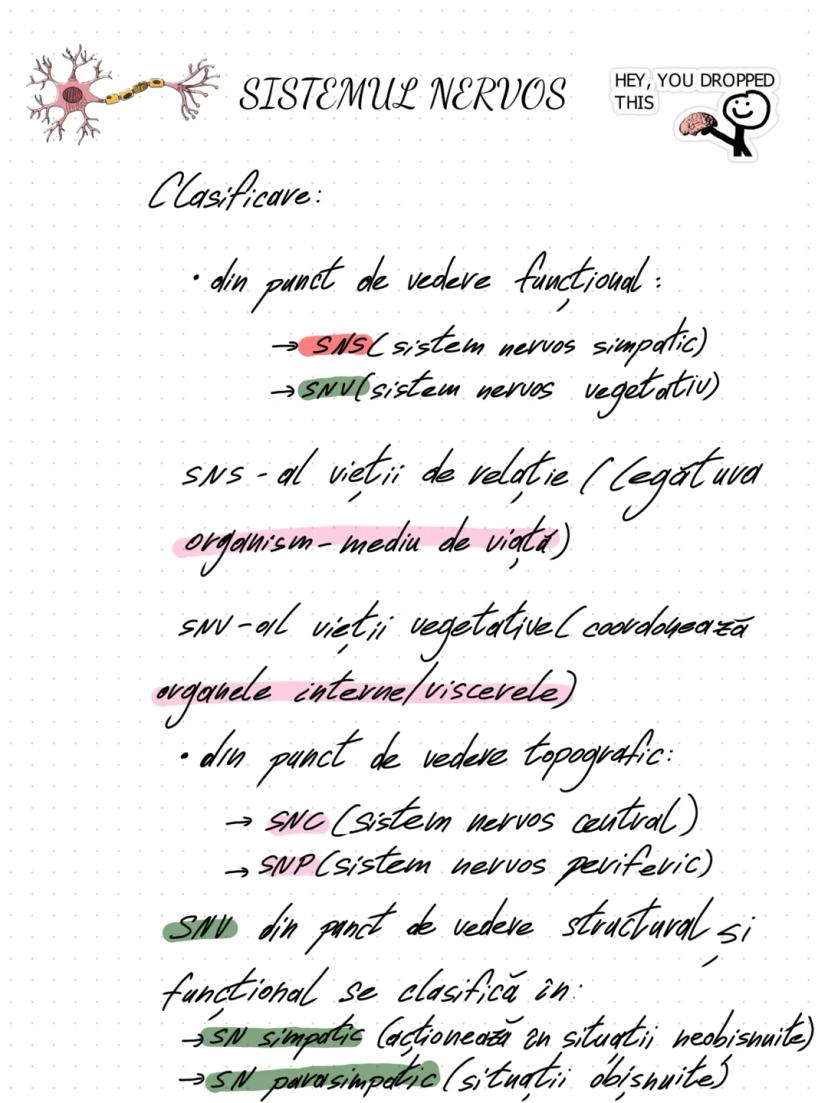 SISTEMUL NERVOS
HEY, YOU DROPPED
THIS
Clasificare:
• din punct de vedere funcțional:
→ SNS (sistem nervos simpatic)
→ SNV (sistem nervos vegetativ)
SNS - al vieții de relație (legătura
organism - mediu de viață)
SNV - al vieții vegetative (coordonează
organele interne/viscerele)
• din punct de vedere topografic:
→ SNC (sistem nervos central)
→ SNP (sistem nervos periferic)
SNV din punct de vedere structural și
funcțional se clasifică în:
→ SN simpatic (acționează în situații neobișnuite)
→ SN parasimpatic (situații obișnuite)